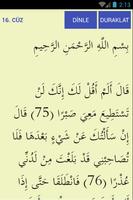 07:13
16. CÜZ
DİNLE
DURAKLAT
بِسْمِ اللَّهِ الرَّحْمَنِ الرَّحِيمِ
قَالَ أَلَمْ أَقُل لَّكَ إِنَّكَ لَن
تَسْتَطِيعَ مَعِيَ صَبْرًا (75) قَالَ
إِن سَأَلْتُكَ عَن شَيْءٍ بَعْدَهَا فَلَا
تُصَاحِبْنِي قَدْ بَلَغْتَ مِن لَّدُنِّي
عُذْرًا (76) فَانطَلَقَا حَتَّى إِذَا